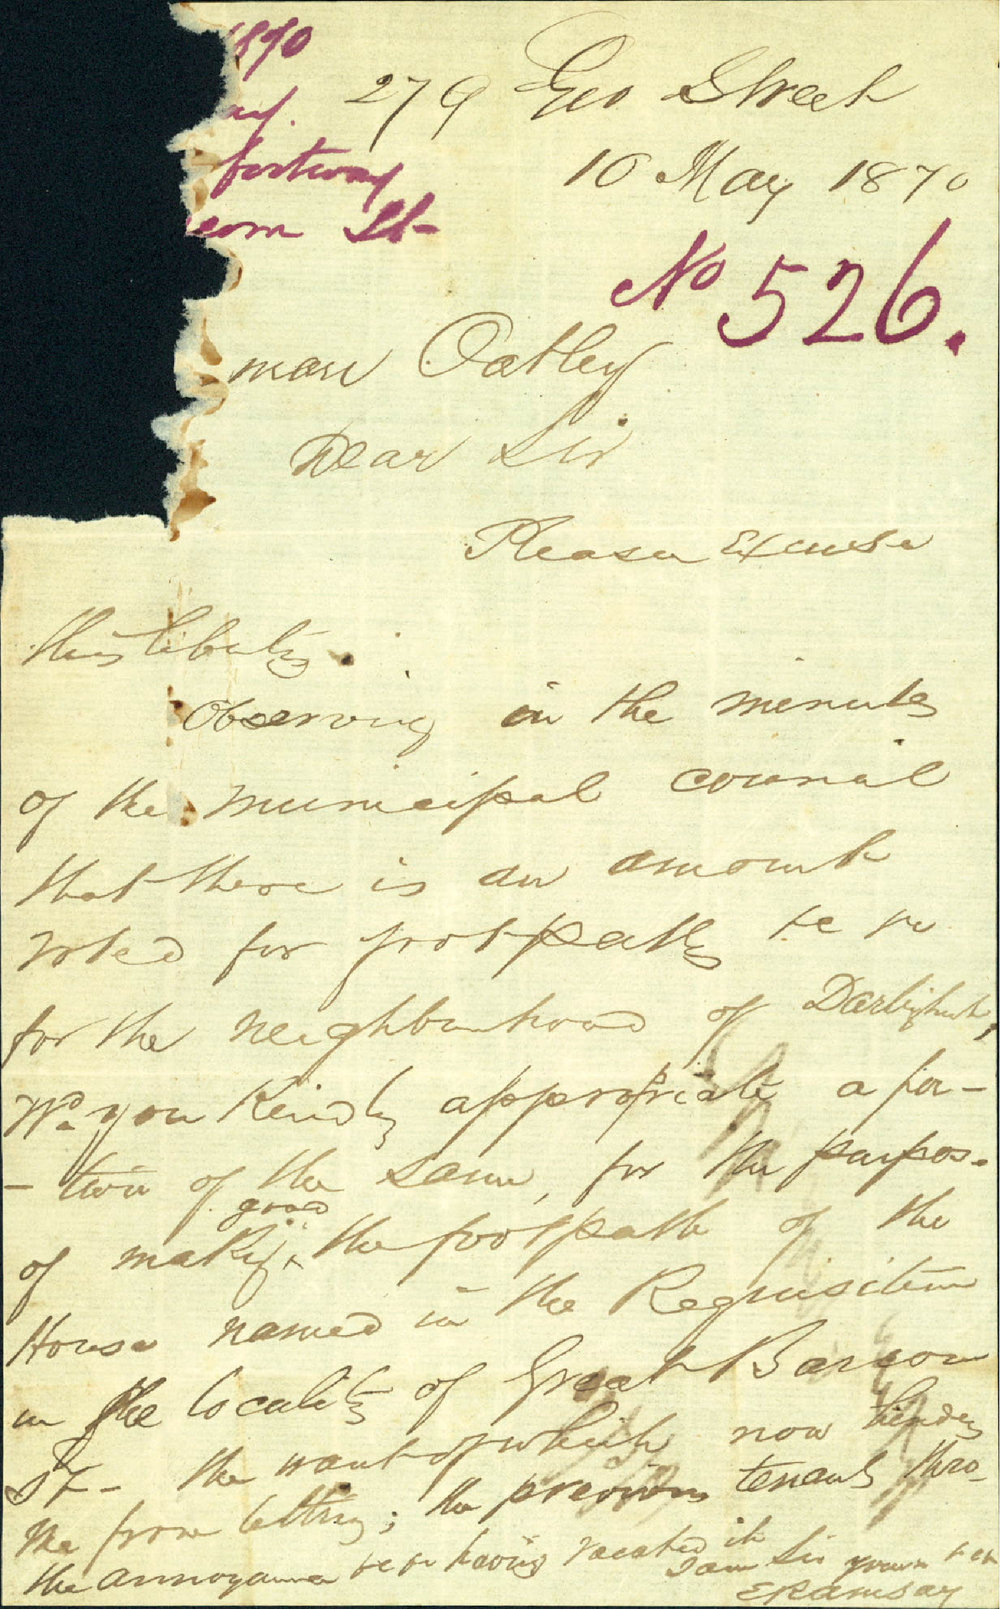 1870
279 Geo Street
footway
10 May 1870
eom St-
No 526.
man Oatley
Dear Sir
Please Excuse
this liberty.
Observing in the minutes
of the Municipal council
that there is an amount
voted for footpaths &c &c
for the neighbourhood of Darlinghurst,
Wd. you Kindly appropriate a por-
- tion of the same, for the purpos.
good
of makg. the footpath of the
House named in the Requisition
in the locality of Great Barcom
St- the want of which now hinders
me from letting; the previous tenants thro
the annoyance &c &c having vacated it
I am Sir yours &c &c
E Ramsay